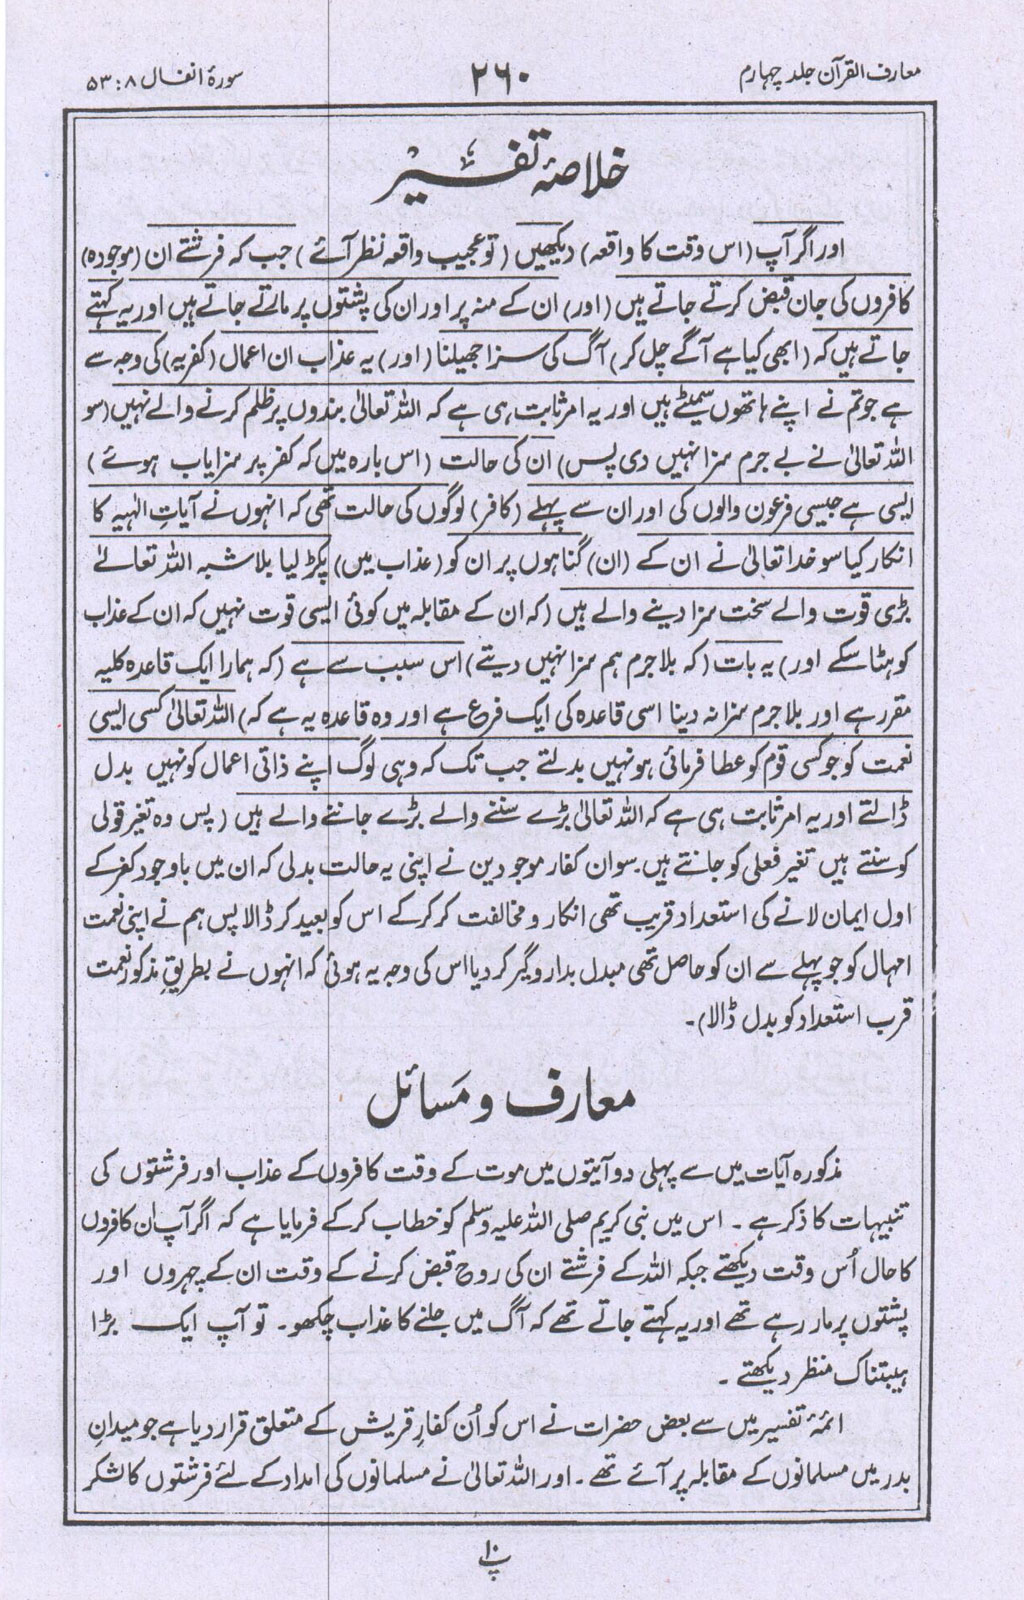 معارف القرآن جلد چہارم
۲۶۰
سورۂ انفال ۸ : ۵۳
خلاصۂ تفسیر
اور اگر آپ (اس وقت کا واقعہ) دیکھیں (تو عجیب واقعہ نظر آئے) جب کہ فرشتے ان (موجودہ)
کافروں کی جان قبض کرتے جاتے ہیں (اور) ان کے منہ پر اور ان کی پشتوں پر مارتے جاتے ہیں اور یہ کہتے
جاتے ہیں کہ (ابھی کیا ہے آگے چل کر) آگ کی سزا جھیلنا (اور) یہ عذاب ان اعمال (کفریہ) کی وجہ سے
ہے جو تم نے اپنے ہاتھوں سمیٹے ہیں اور یہ امر ثابت ہی ہے کہ اللہ تعالیٰ بندوں پر ظلم کرنے والے نہیں (سو
اللہ تعالیٰ نے بے جرم سزا نہیں دی پس) ان کی حالت (اس بارہ میں کہ کفر پر سزایاب ہوئے)
ایسی ہے جیسی فرعون والوں کی اور ان سے پہلے (کافر) لوگوں کی حالت تھی کہ انہوں نے آیاتِ الٰہیہ کا
انکار کیا سو خدا تعالیٰ نے ان کے (ان) گناہوں پر ان کو (عذاب میں) پکڑ لیا بلاشبہ اللہ تعالےٰ
بڑی قوت والے سخت سزا دینے والے ہیں (کہ ان کے مقابلہ میں کوئی ایسی قوت نہیں کہ ان کے عذاب
کو ہٹا سکے اور) یہ بات (کہ بلا جرم ہم سزا نہیں دیتے) اس سبب سے ہے (کہ ہمارا ایک قاعدہ کلیہ
مقرر ہے اور بلا جرم سزا نہ دینا اسی قاعدہ کی ایک فرع ہے اور وہ قاعدہ یہ ہے کہ) اللہ تعالیٰ کسی ایسی
نعمت کو جو کسی قوم کو عطا فرمائی ہو نہیں بدلتے جب تک کہ وہی لوگ اپنے ذاتی اعمال کو نہیں بدل
ڈالتے اور یہ امر ثابت ہی ہے کہ اللہ تعالیٰ بڑے سننے والے بڑے جاننے والے ہیں (پس وہ تغیر قولی
کو سنتے ہیں تغیر فعلی کو جانتے ہیں۔ سو ان کفار موجودین نے اپنی یہ حالت بدلی کہ ان میں باوجود کفر کے
اول ایمان لانے کی استعداد قریب تھی انکار و مخالفت کر کر کے اس کو بعید کر ڈالا پس ہم نے اپنی نعمت
امہال کو جو پہلے سے ان کو حاصل تھی مبدل بدار و گیر کر دیا اس کی وجہ یہ ہوئی کہ انہوں نے بطریقِ مذکور نعمت
قرب استعداد کو بدل ڈالا)۔
معارف و مسائل
مذکورہ آیات میں سے پہلی دو آیتوں میں موت کے وقت کافروں کے عذاب اور فرشتوں کی
تنبیہات کا ذکر ہے۔ اس میں نبی کریم صلی اللہ علیہ وسلم کو خطاب کر کے فرمایا ہے کہ اگر آپ ان کافروں
کا حال اُس وقت دیکھتے جبکہ اللہ کے فرشتے ان کی روح قبض کرنے کے وقت ان کے چہروں اور
پشتوں پر مار رہے تھے اور یہ کہتے جاتے تھے کہ آگ میں جلنے کا عذاب چکھو۔ تو آپ ایک بڑا
ہیبتناک منظر دیکھتے۔
ائمۂ تفسیر میں سے بعض حضرات نے اس کو اُن کفارِ قریش کے متعلق قرار دیا ہے جو میدانِ
بدر میں مسلمانوں کے مقابلہ پر آئے تھے۔ اور اللہ تعالیٰ نے مسلمانوں کی امداد کے لئے فرشتوں کا لشکر